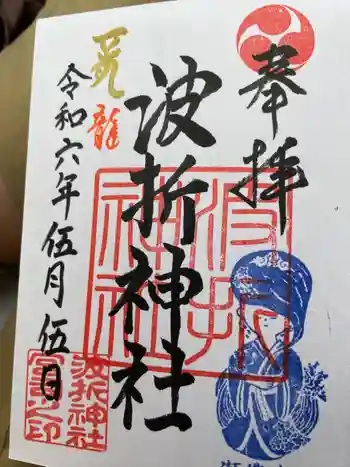 奉拝
波折神社
波折神社
荒龍
令和六年伍月伍日
波折神社
宮司之印